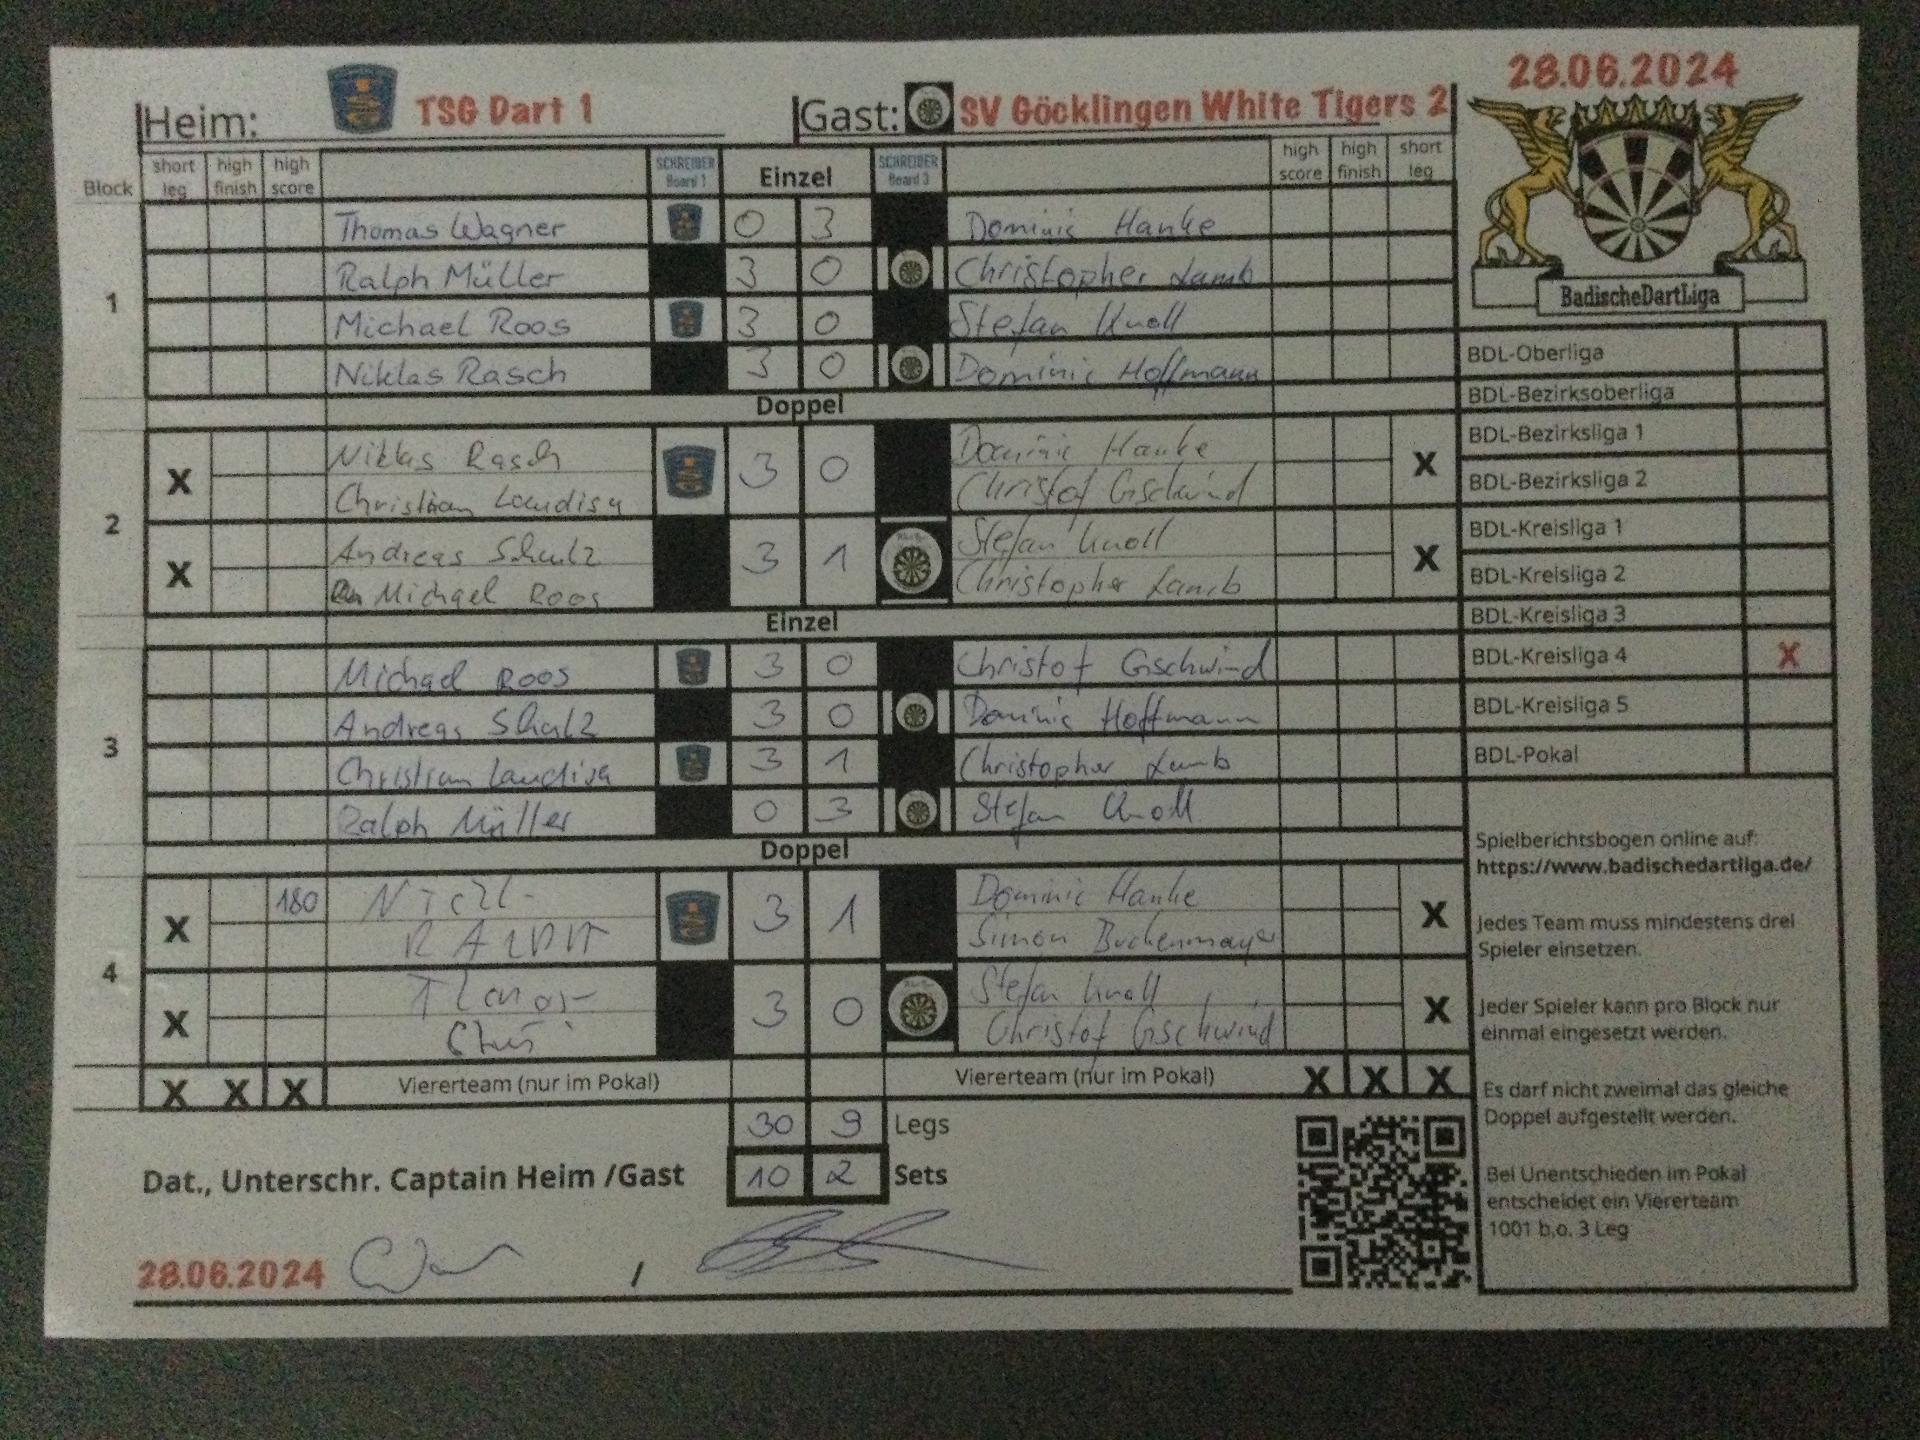 28.06.2024
Heim: TSG Dart 1 Gast: SV Göcklingen White Tigers 2
Block short leg high finish high score SCHREIBER Board 1 Einzel SCHREIBER Board 3 high score high finish short leg
1
Thomas Wagner 0 3 Dominic Hanke
Ralph Müller 3 0 Christopher Lamb
Michael Roos 3 0 Stefan Knoll
Niklas Rasch 3 0 Dominic Hoffmann
Doppel
2
X Niklas Rasch 3 0 Dominic Hanke X
Christian Laudisa Christof Gschwind
X Andreas Schulz 3 1 Stefan Knoll X
Michael Roos Christopher Lamb
Einzel
3
Michael Roos 3 0 Christof Gschwind
Andreas Schulz 3 0 Dominic Hoffmann
Christian Laudisa 3 1 Christopher Lamb
Ralph Müller 0 3 Stefan Knoll
Doppel
4
X 180 3 1 Dominic Hanke X
Simon Buckenmayer
X 3 0 Stefan Knoll X
Christof Gschwind
X X X Viererteam (nur im Pokal) Viererteam (nur im Pokal) X X X
30 9 Legs
Dat., Unterschr. Captain Heim /Gast 10 2 Sets
28.06.2024 /
BadischeDartLiga
BDL-Oberliga
BDL-Bezirksoberliga
BDL-Bezirksliga 1
BDL-Bezirksliga 2
BDL-Kreisliga 1
BDL-Kreisliga 2
BDL-Kreisliga 3
BDL-Kreisliga 4 X
BDL-Kreisliga 5
BDL-Pokal
Spielberichtsbogen online auf:
https://www.badischedartliga.de/
Jedes Team muss mindestens drei
Spieler einsetzen.
Jeder Spieler kann pro Block nur
einmal eingesetzt werden.
Es darf nicht zweimal das gleiche
Doppel aufgestellt werden.
Bei Unentschieden im Pokal
entscheidet ein Viererteam
1001 b.o. 3 Leg